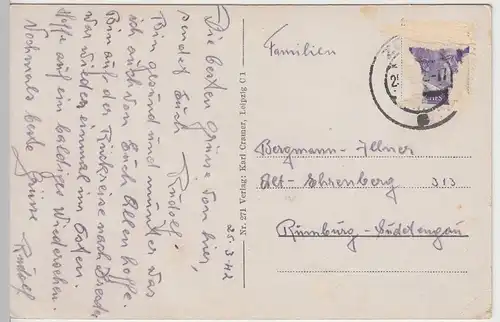 Die besten Grüsse von hier,
sendet Euch Rudolf.
Bin gesund und munter was
ich auch von Euch Allen hoffe.
Bin auf der Rückreise nach Dresden
war wieder einmal im Osten.
Hoffe auf ein baldiges Wiedersehen.
Nochmals beste Grüsse
Rudolf
25.3.42
Nr. 271 Verlag: Karl Cramer, Leipzig C 1
Familien
Bergmann-Illner
Alt-Ehrenberg 313
Rumburg-Suddengau